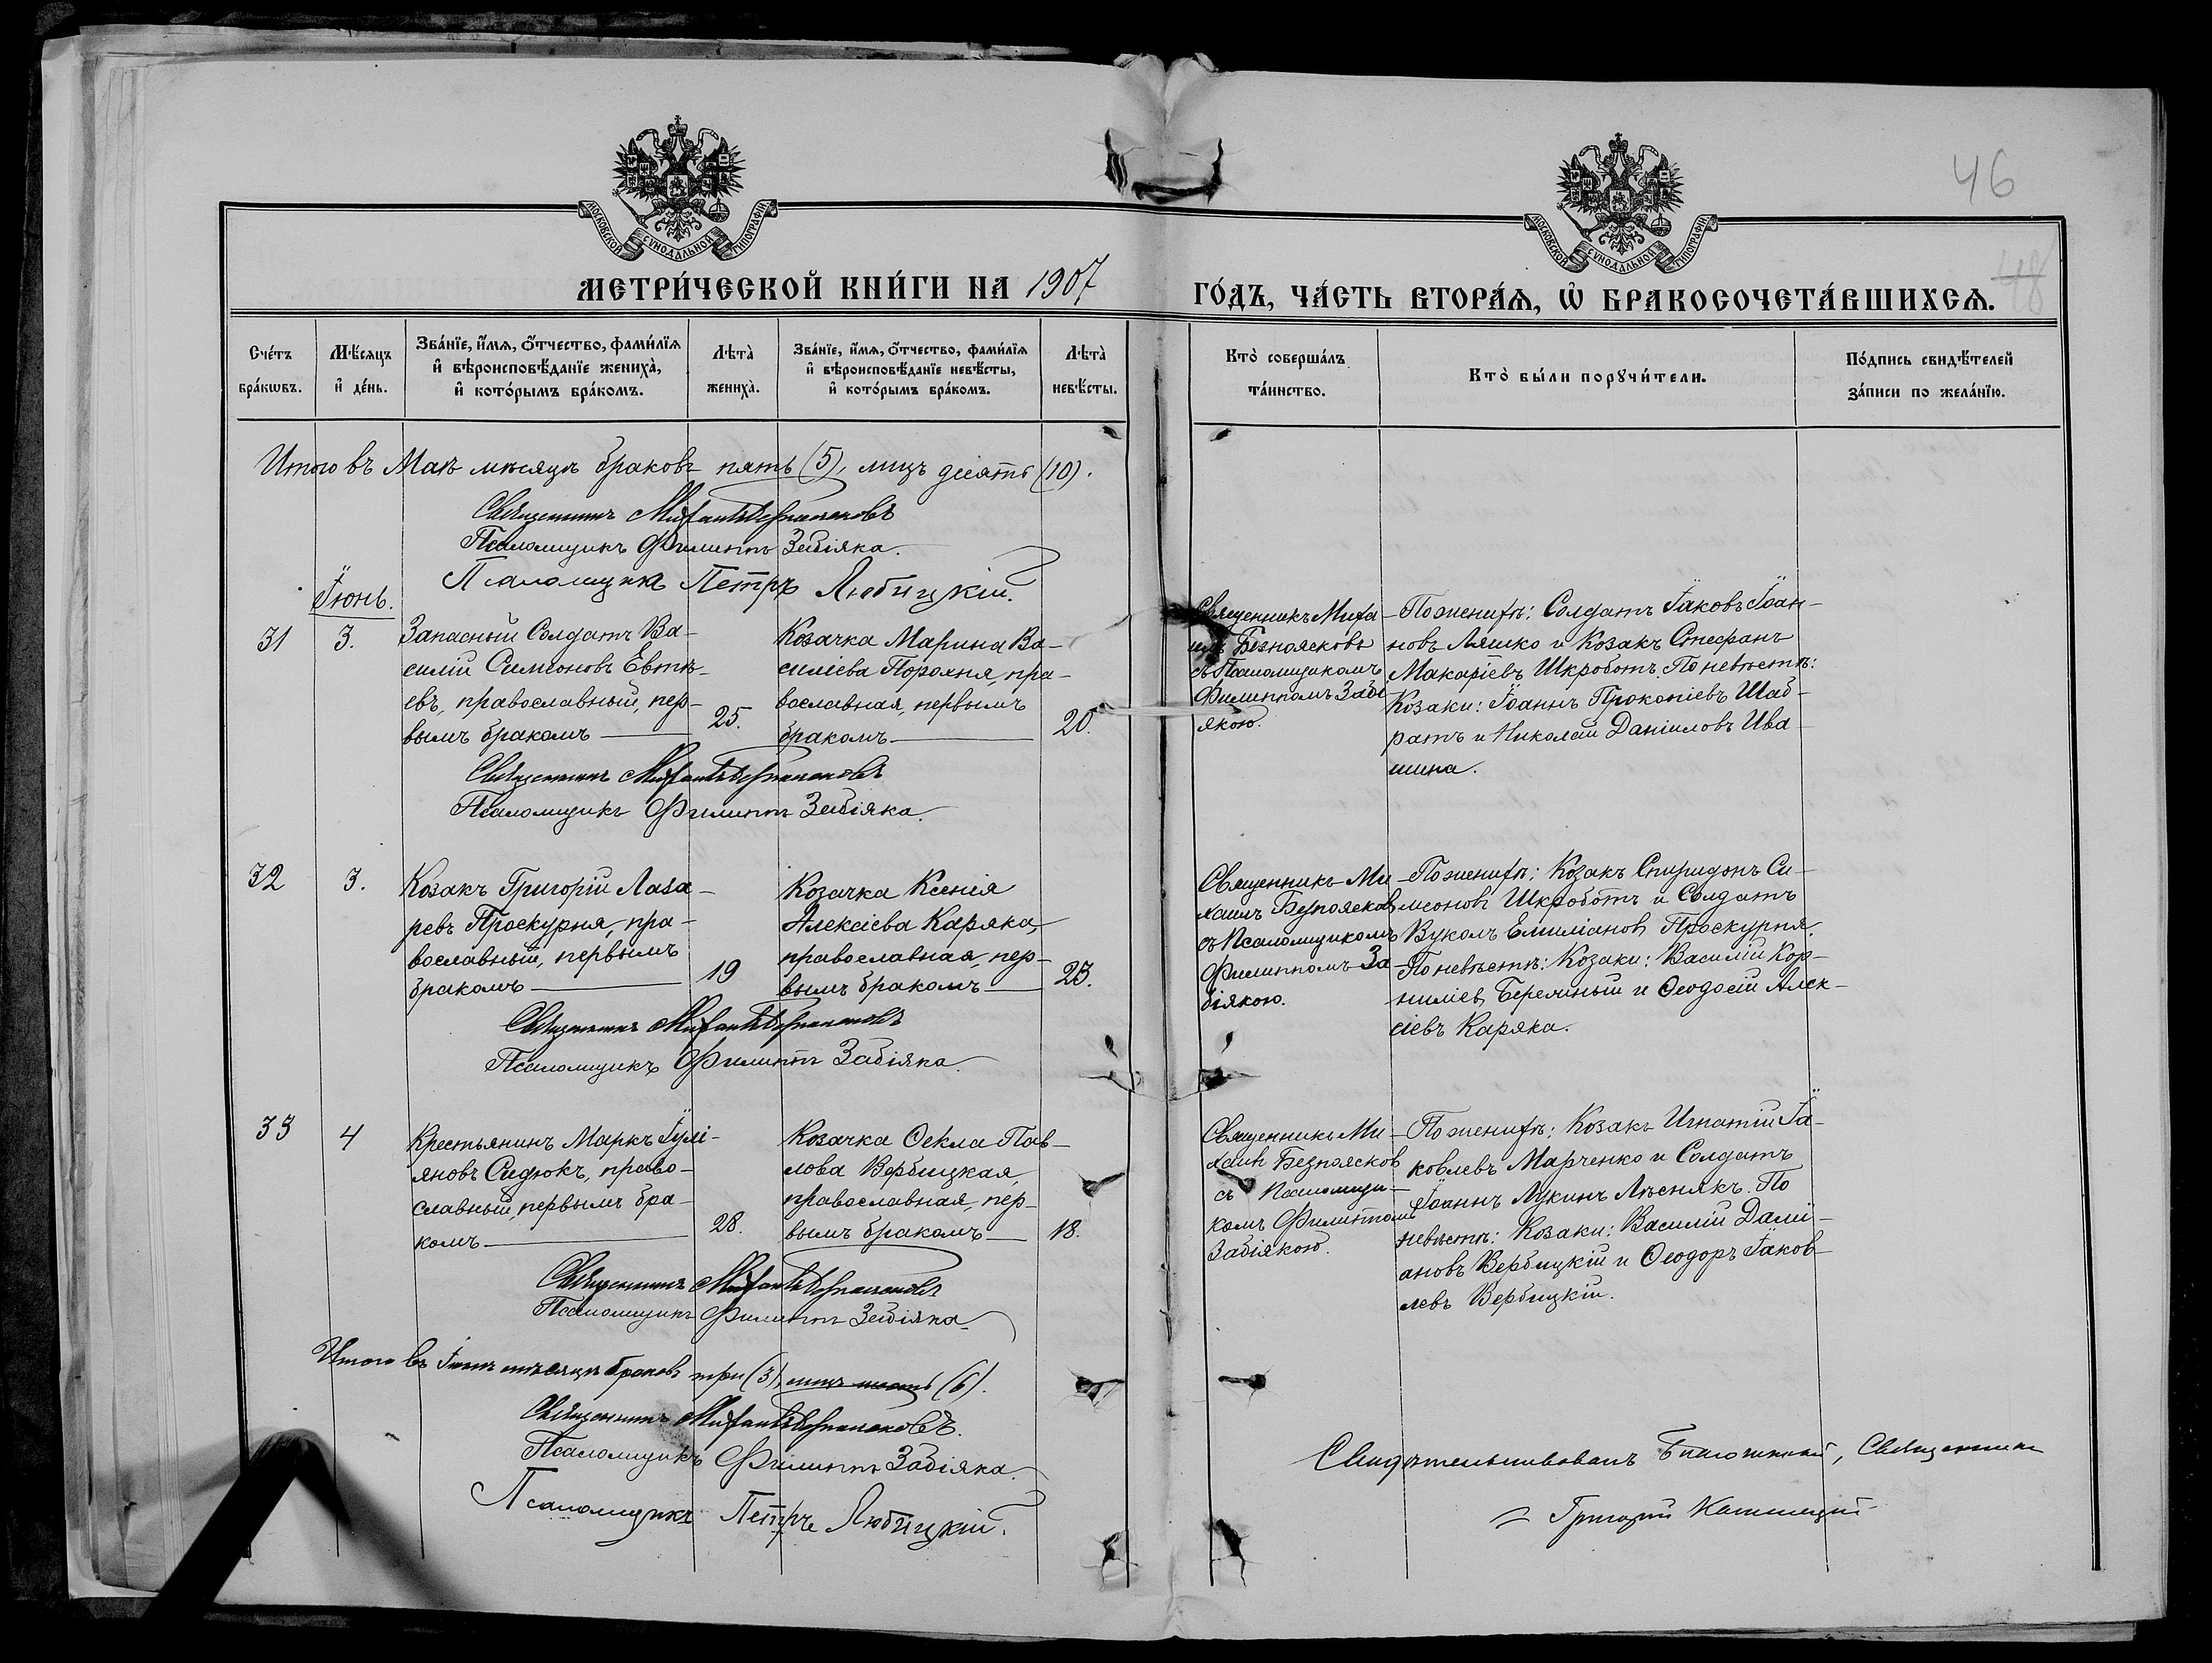 46
48
МОСКОВСКОЙ СУНОДАЛЬНОЙ ТИПОГРАФІИ
МОСКОВСКОЙ СУНОДАЛЬНОЙ ТИПОГРАФІИ
МЕТРИ́ЧЕСКОЙ КНИ́ГИ НА 1907
ГО́ДЪ, ЧА́СТЬ ВТОРА́Ѧ, Ѡ҆ БРАКОСОЧЕТА́ВШИХСѦ.
Сче́тъ бра́кѡвъ.
Мѣ́сяцъ и҆ де́нь.
Зва́нїе, и҆́мѧ, ѻ҆́тчество, фами́лїѧ
и҆ вѣроисповѣ́данїе жениха̀,
и҆ кото́рымъ бра́комъ.
Лѣта̀ жениха̀.
Зва́нїе, и҆́мѧ, ѻ҆́тчество, фами́лїѧ
и҆ вѣроисповѣ́данїе невѣ́сты,
и҆ кото́рымъ бра́комъ.
Лѣта̀ невѣ́сты.
Кто̀ соверша́лъ
та́инство.
Кто̀ бы́ли порꙋчи́тели.
По́дпись свидѣ́телей
за́писи по жела́нїю.
Итого въ Маѣ мѣсяцѣ браковъ пять (5), лицъ десять (10).
Священникъ Михаилъ Безпоясковъ
Псаломщикъ Филиппъ Забіяка.
Псаломщикъ Петръ Любицкій.
Іюнь.
31
3.
Запасный Солдатъ Ва-
силій Симеоновъ Евтѣ-
евъ, православный, пер-
вымъ бракомъ
25.
Козачка Марина Ва-
силіева Пороhня, пра-
вославная, первымъ
бракомъ
20.
Священникъ Миха
илъ Безпоясковъ
съ Псаломщикомъ
Филиппомъ Забі
якою.
По женихѣ: Солдатъ Іаковъ Іоан-
новъ Ляшко и Козакъ Стефанъ
Макаріевъ Шкроботъ. По невѣстѣ:
Козаки: Іоаннъ Прокопіевъ Шаб-
ратъ и Николай Даніиловъ Ива-
шина.
Священникъ Михаилъ Безпоясковъ
Псаломщикъ Филиппъ Забіяка.
32
3.
Козакъ Григорій Лаза-
ревъ Проскурня, пра-
вославный, первымъ
бракомъ
19
Козачка Ксенія
Алексіева Каряка,
православная, пер-
вымъ бракомъ
23.
Священникъ Ми-
хаилъ Безпоясков
съ Псаломщикомъ
Филиппомъ За-
біякою.
По женихѣ: Козакъ Спиридонъ Си-
меоновъ Шкроботъ и Солдатъ
Вуколъ Емиліановъ Проскурня.
По невѣстѣ: Козаки: Василій Кор-
ниліев Беремный и Ѳеодосій Алек-
сіевъ Каряка.
Священникъ Михаилъ Безпоясковъ
Псаломщикъ Филиппъ Забіяка.
33
4
Крестьянинъ Маркъ Іулі-
яновъ Сидюкъ, право-
славный, первымъ бра-
комъ
28.
Козачка Ѳекла Пав-
лова Вербицкая,
православная, пер-
вымъ бракомъ
18.
Священникъ Ми-
хаилъ Безпоясков
съ Псаломщи-
комъ Филиппомъ
Забіякою.
По женихѣ: Козакъ Игнатій Іа-
ковлевъ Марченко и Солдатъ
Іоаннъ Лукинъ Лѣснякъ. По
невѣстѣ: Козаки: Василій Дамі-
ановъ Вербицкій и Ѳеодоръ Іаков-
левъ Вербицкій.
Священникъ Михаилъ Безпоясковъ
Псаломщикъ Филиппъ Забіяка
Итого въ Іюнѣ мѣсяцѣ браковъ три (3), лицъ шесть (6).
Священникъ Михаилъ Безпоясковъ.
Псаломщикъ Филиппъ Забіяка.
Псаломщикъ Петръ Любицкій.
Свидѣтельствовалъ Благочинный, Священник
Григорій